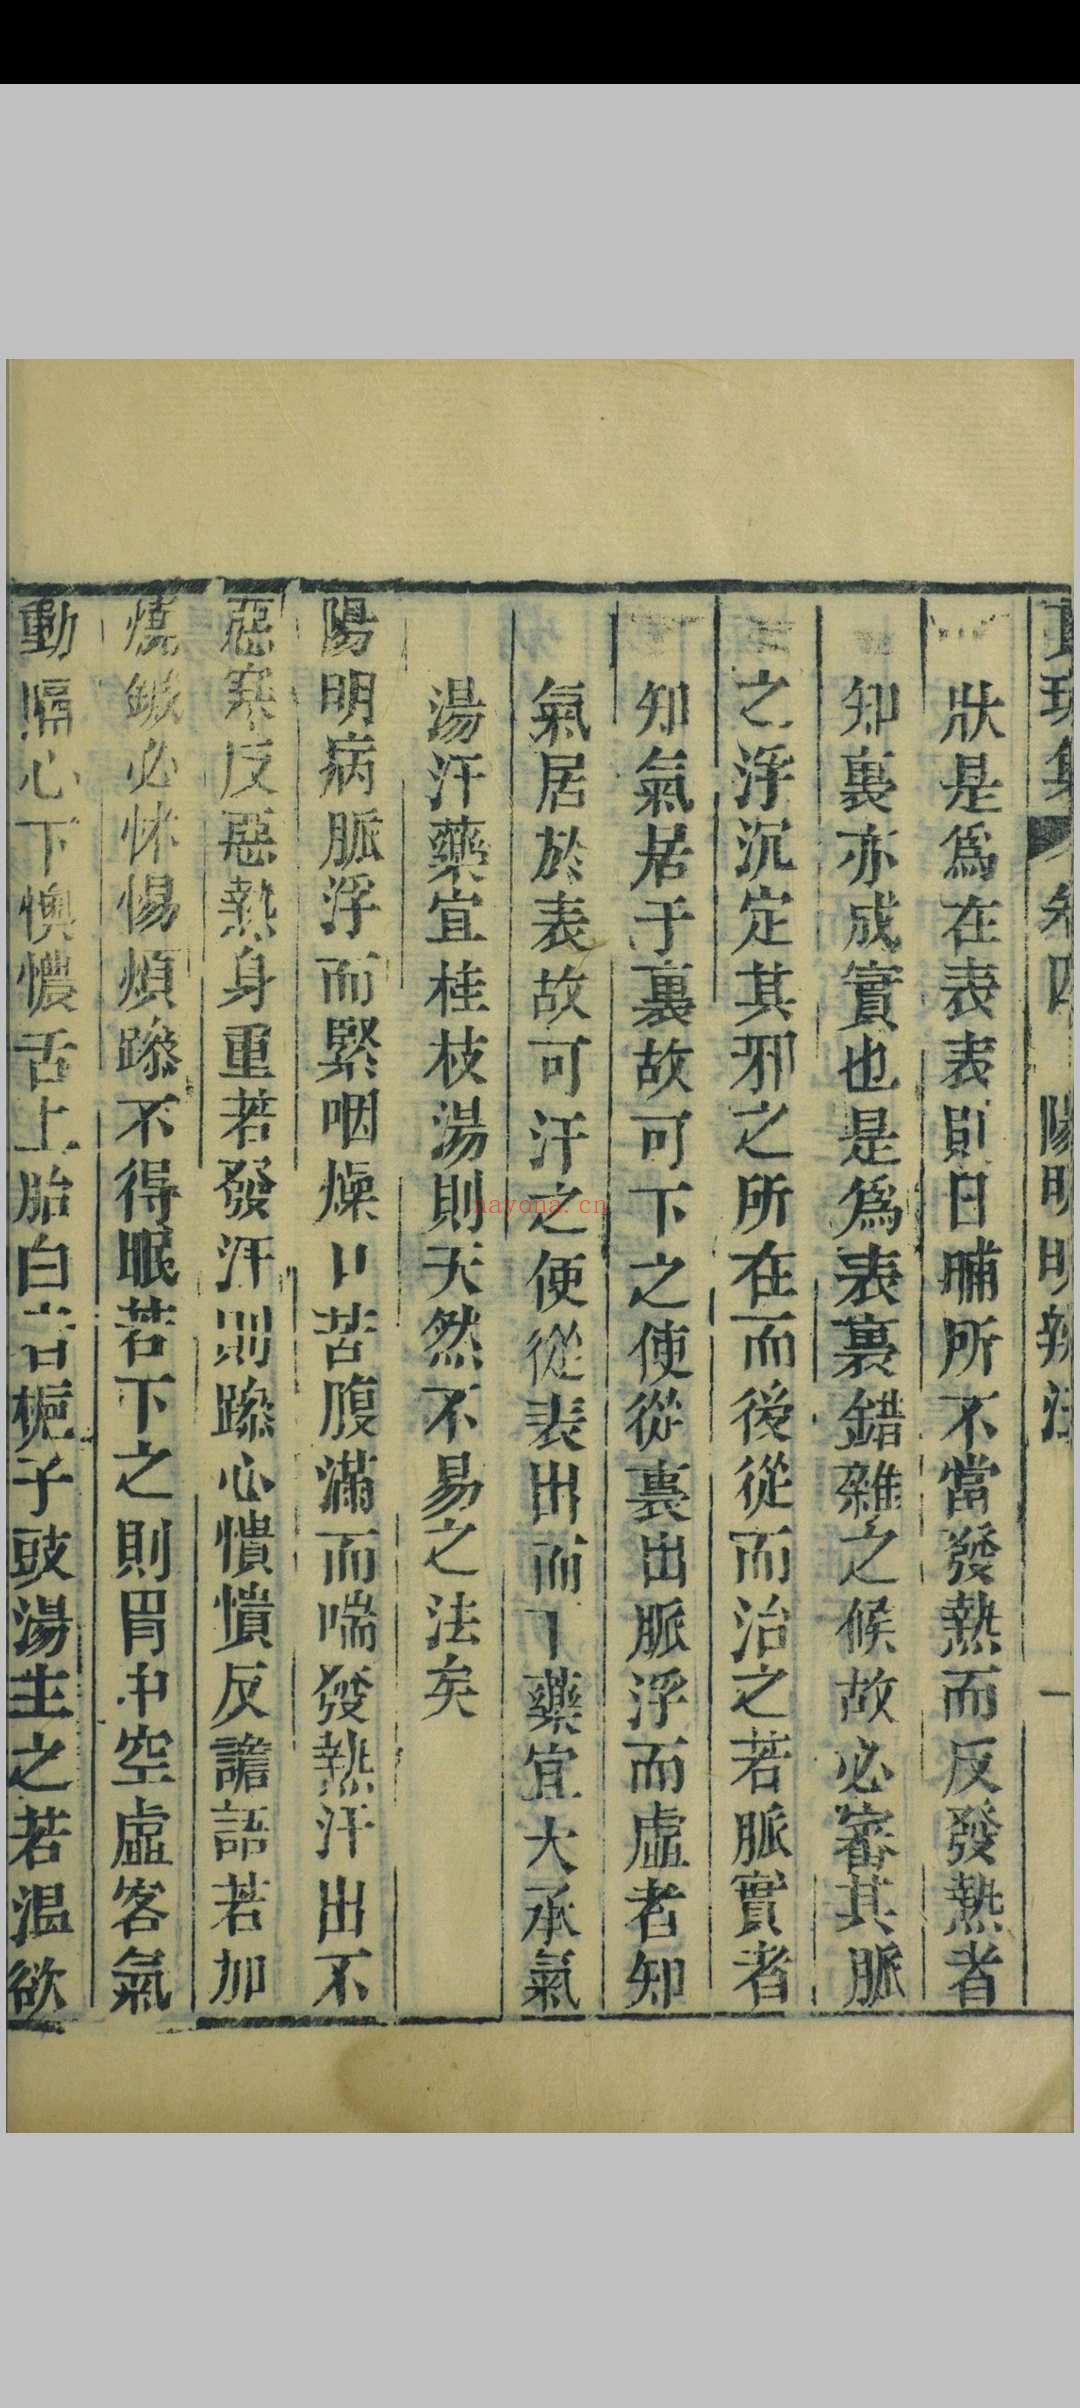 集 卷四 陽明明辨法 一
狀是爲在表表則日晡所不當發熱而反發熱者
知裏亦成實也是爲表裏錯雜之候故必審其脈
之浮沉定其邪之所在而後從而治之若脈實者
知氣居于裏故可下之使從裏出脈浮而虛者知
氣居於表故可汗之便從表出而藥宜大承氣
湯汗藥宜桂枝湯則天然不易之法矣
陽明病脈浮而緊咽燥口苦腹滿而喘發熱汗出不
惡寒反惡熱身重若發汗則躁心憒憒反譫語若加
燒鍼必怵惕煩躁不得眠若下之則胃中空虛客氣
動膈心下懊憹舌上胎白者梔子豉湯主之若渴欲
nayona.cn